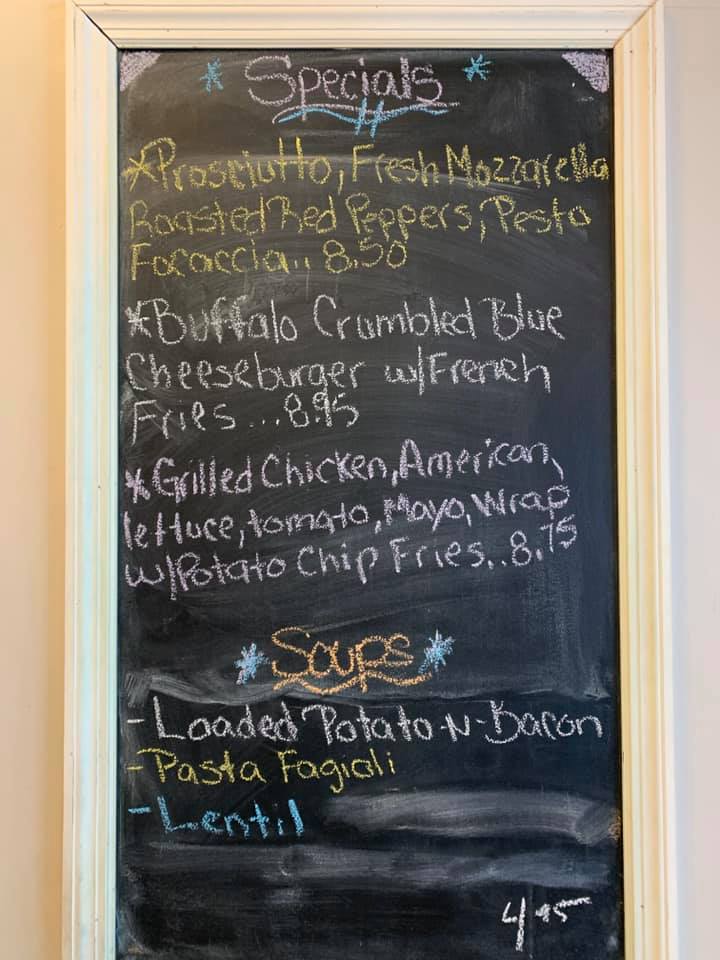 Specials
*Prosciutto, Fresh Mozzarella
Roasted Red Peppers, Pesto
Focaccia.. 8.50
*Buffalo Crumbled Blue
Cheeseburger w/French
Fries...8.95
*Grilled Chicken, American,
lettuce, tomato, Mayo, Wrap
w/Potato Chip Fries..8.75
Soups
-Loaded Potato-N-Bacon
-Pasta Fagioli
-Lentil
4.95